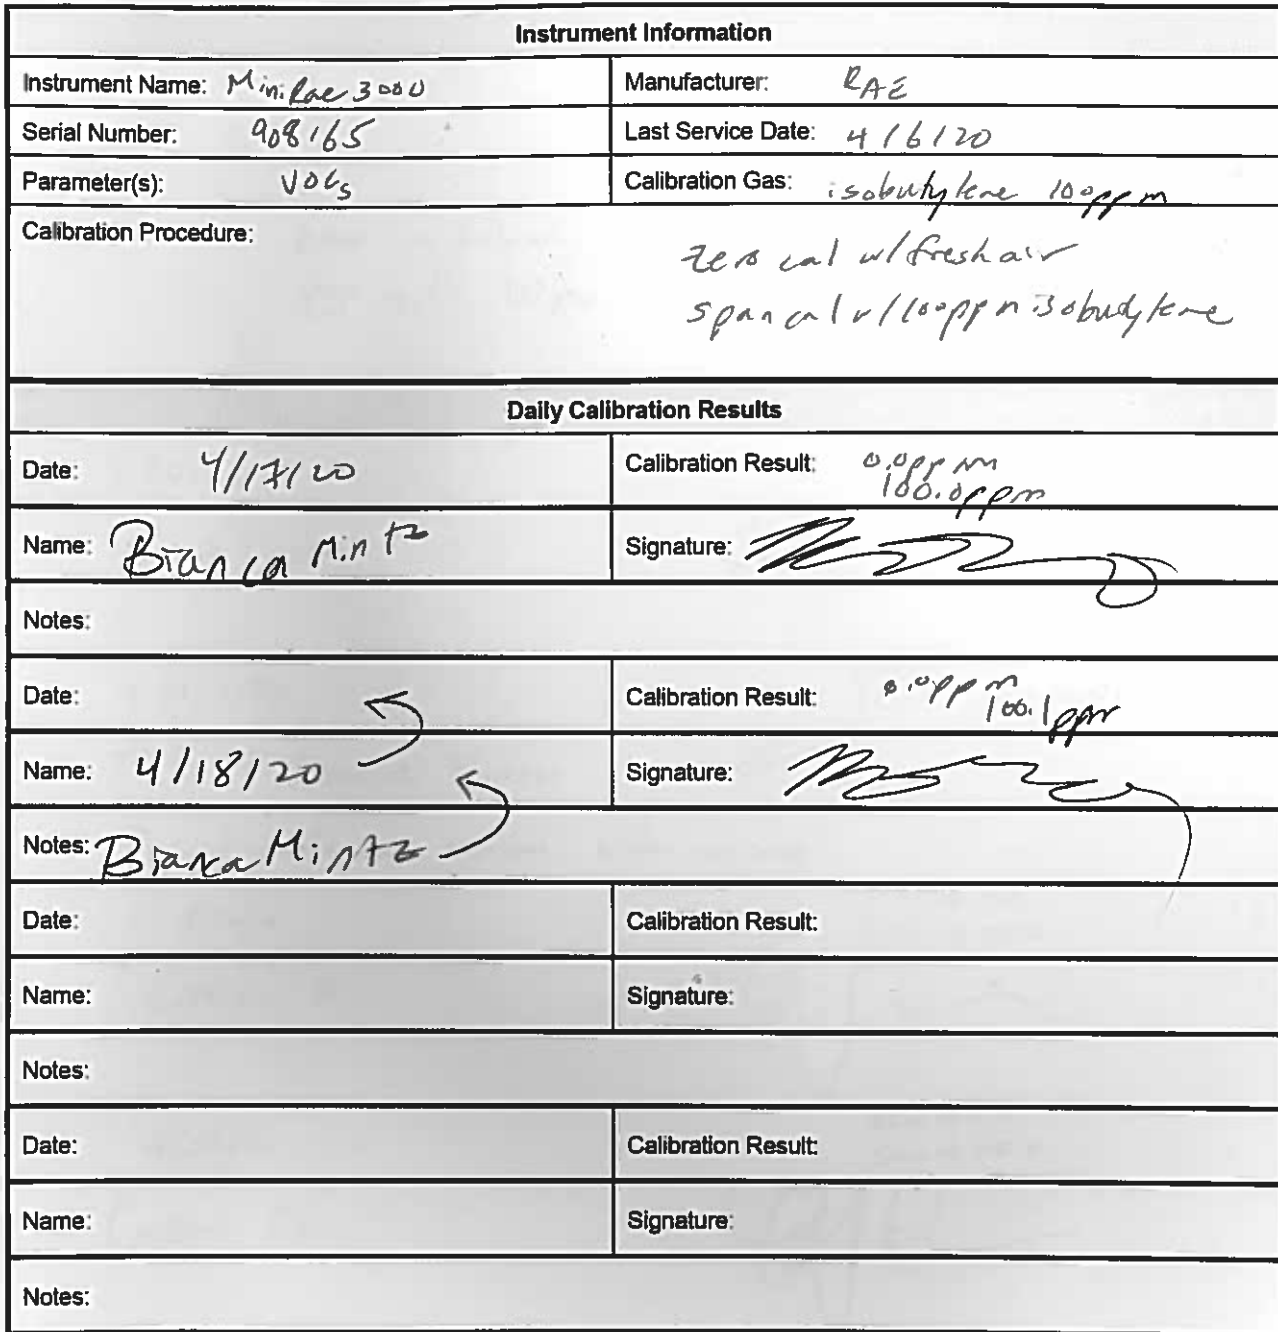 Instrument Information
Instrument Name: MiniRae 3000
Manufacturer: RAE
Serial Number: 908165
Last Service Date: 4/6/20
Parameter(s): VOCs
Calibration Gas: isobutylene 100ppm
Calibration Procedure:
zero cal w/ fresh air
span cal w/ 100ppm isobutylene
Daily Calibration Results
Date: 4/17/20
Calibration Result: 0.0ppm
100.0ppm
Name: Bianca Mintz
Signature:
Notes:
Date:
Calibration Result: 0.0ppm
100.1ppm
Name: 4/18/20
Signature:
Notes: Bianca Mintz
Date:
Calibration Result:
Name:
Signature:
Notes:
Date:
Calibration Result:
Name:
Signature:
Notes: